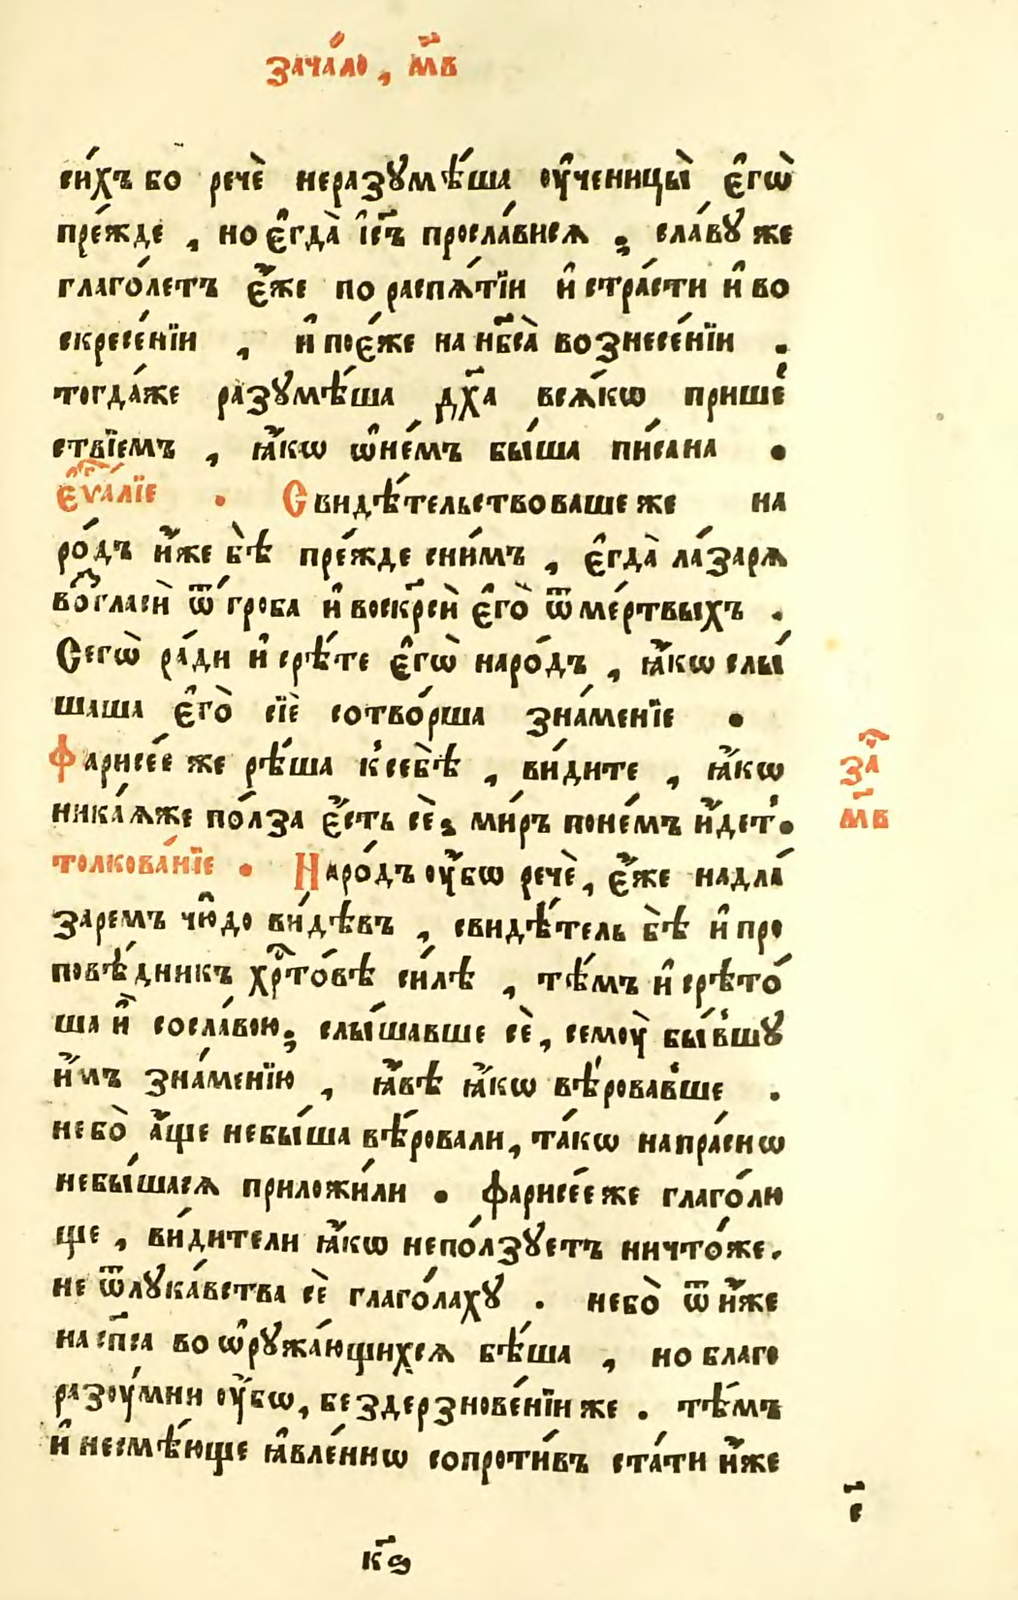 зача́ло, м҃в
си́хъ бо речѐ неразꙋмѣ́ша ᲂу҆ченицы̀ є҆гѡ̀
пре́жде , но є҆гда̀ і҆с҃ъ просла́вися , сла́вꙋ же
глаго́летъ є҆́же по распѧ́тїи и҆ стра́сти и҆ во
скресе́нїи , и҆ посє́же на нб҃са̀ вознесе́нїи .
тогда́же разꙋмѣ́ша дх҃а всѧ́кѡ прише́
ствїемъ , ꙗ҆́кѡ ѡ҆не́мъ бы́ша пи́сана .
є҆ѵⷢ҇а́лїе . Свидѣ́тельствоваше же на
ро́дъ и҆́же бѣ̀ пре́жде сни́мъ , є҆гда̀ ла́зарѧ
воⷥ҇гласѝ ѿ гро́ба и҆ воскр҃сѝ є҆го̀ ѿ ме́ртвыхъ .
Сегѡ̀ ра́ди и҆ срѣ́те є҆гѡ̀ наро́дъ , ꙗ҆́кѡ слы́
шаша є҆го̀ сїѐ сотво́рша зна́менїе .
Фарисе́е же рѣ́ша к̾себѣ̀ , ви́дите , ꙗ҆́кѡ
заⷱ҇
никаꙗ́же по́лза є҆́сть се̏ , ми́ръ поне́мъ и҆́дет̾ .
м҃в
толкова́нїе . Наро́дъ ᲂу҆́бѡ речѐ , є҆́же надла́
заремъ чю́до ви́дѣвъ , свидѣ́тель бѣ̀ и҆ про
повѣ́дникъ хрⷭ҇то́вѣ си́лѣ , тѣ́мъ и҆ срѣто́
ша и҆̀ сосла́вою , слы́шавше се̏ , семᲂу̀ бы́в̾шꙋ
и҆̀мъ зна́менїю , ꙗ҆́вѣ ꙗ҆́кѡ вѣ́ровав̾ше .
небо̀ а҆́ще небы́ша вѣ́ровали , та́кѡ напра́снѡ
небы́шасѧ приложи́ли . фарисе́е же глаго́лю
ще , ви́дители ꙗ҆́кѡ непо́лзꙋетъ ничто́же .
не ѿлꙋка́вства се̏ глаго́лахꙋ . небо̀ ѿ и҆́же
на сп҃са во ѡ҆рꙋжа́ющихсѧ бѣ́ша , но благо
разᲂу́мни ᲂу҆́бѡ , бездерзнове́нїи же . тѣ́мъ
и҆ несмѣ́юще ꙗ҆вле́ннѡ сопроти́въ ста́ти и҆́же
с҃
к҃ѳ